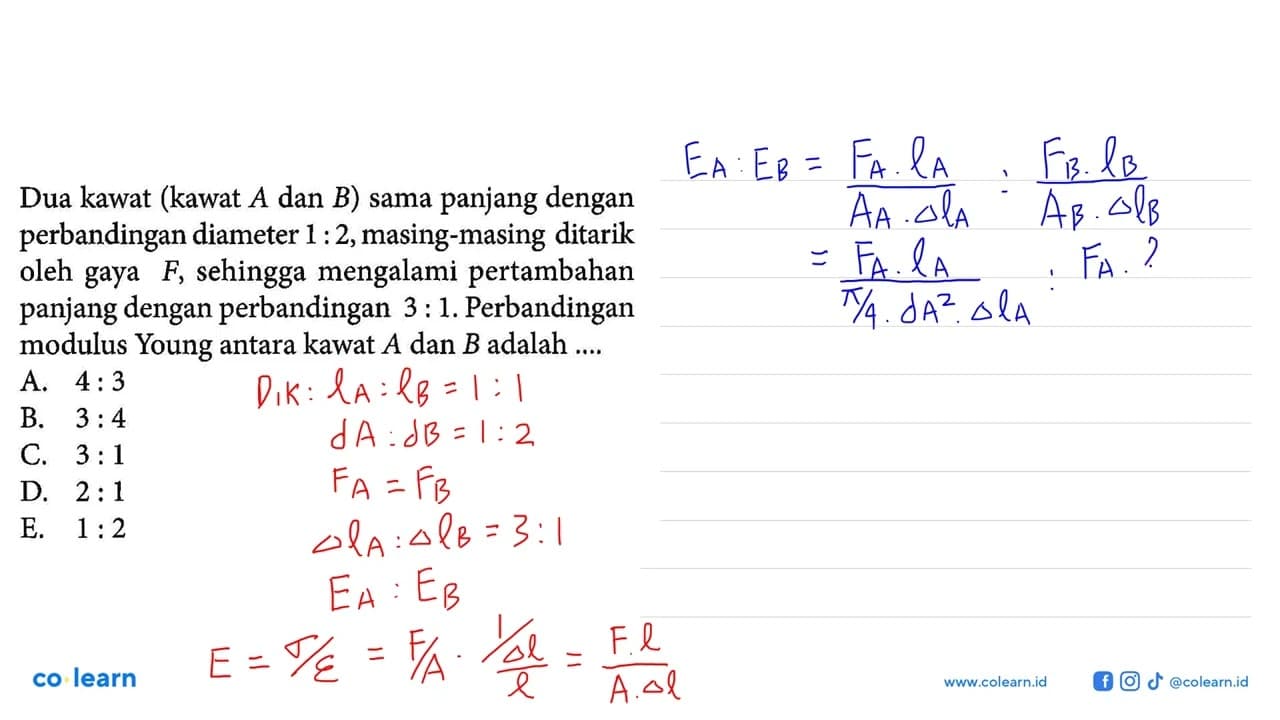 Dua kawat (kawat A dan B) sama panjang dengan
perbandingan diameter 1 : 2, masing-masing ditarik
oleh gaya F, sehingga mengalami pertambahan
panjang dengan perbandingan 3 : 1. Perbandingan
modulus Young antara kawat A dan B adalah ....
A. 4 : 3
B. 3 : 4
C. 3 : 1
D. 2 : 1
E. 1 : 2
DIK: lA : lB = 1 : 1
dA : dB = 1 : 2
FA = FB
ΔlA : ΔlB = 3 : 1
EA : EB
E = σ/ε = F/A . 1/(Δl/l) = F.l/(A.Δl)
EA : EB = FA.lA/(AA.ΔlA) : FB.lB/(AB.ΔlB)
= FA.lA/(π/4.dA².ΔlA) : FA.?
co learn
www.colearn.id
@colearn.id